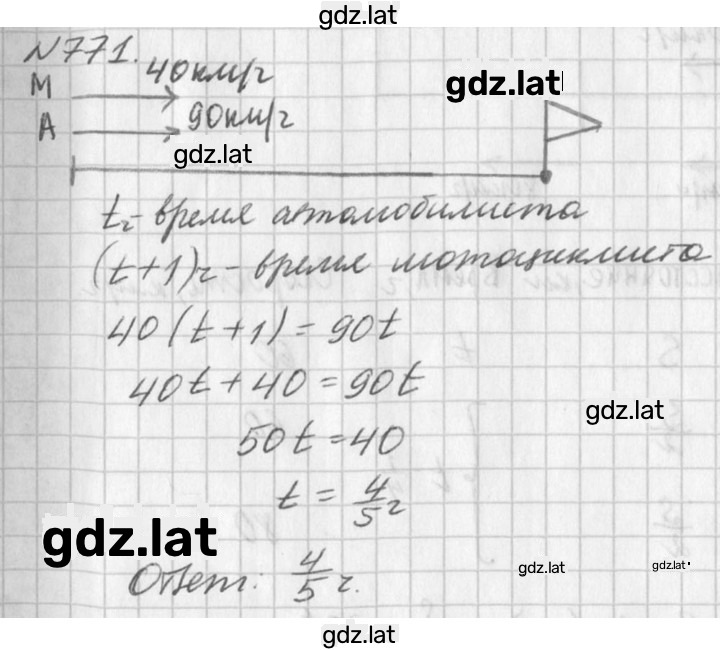 gdz.lat
№771.
40км/г
М
gdz.lat
А
90км/г
gdz.lat
tг - время автомобилиста
(t+1)г - время мотоциклиста
40(t+1)=90t
40t+40=90t
gdz.lat
50t=40
t = 4/5 г
gdz.lat
Ответ: 4/5 г.
gdz.lat
gdz.lat
gdz.lat